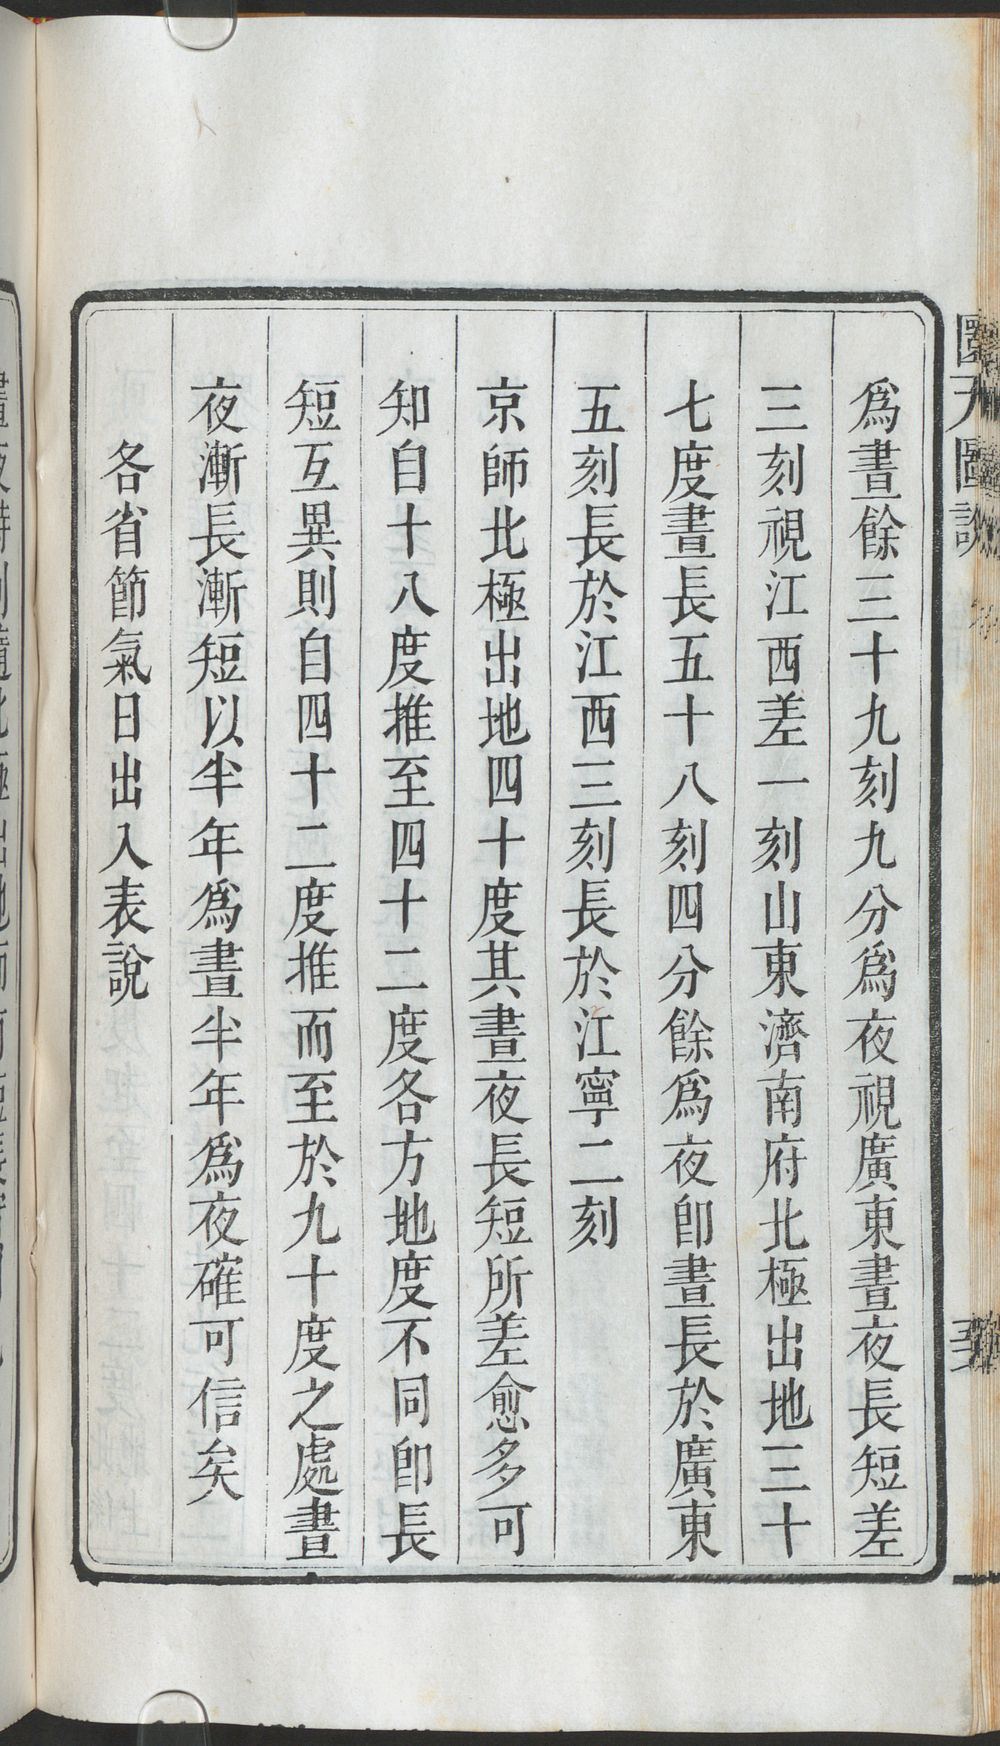 爲晝餘三十九刻九分爲夜視廣東晝夜長短差
三刻視江西差一刻山東濟南府北極出地三十
七度晝長五十八刻四分餘爲夜卽晝長於廣東
五刻長於江西三刻長於江寧二刻
京師北極出地四十度其晝夜長短所差愈多可
知自十八度推至四十二度各方地度不同卽長
短互異則自四十二度推而至於九十度之處晝
夜漸長漸短以半年爲晝半年爲夜確可信矣
各省節氣日出入表說